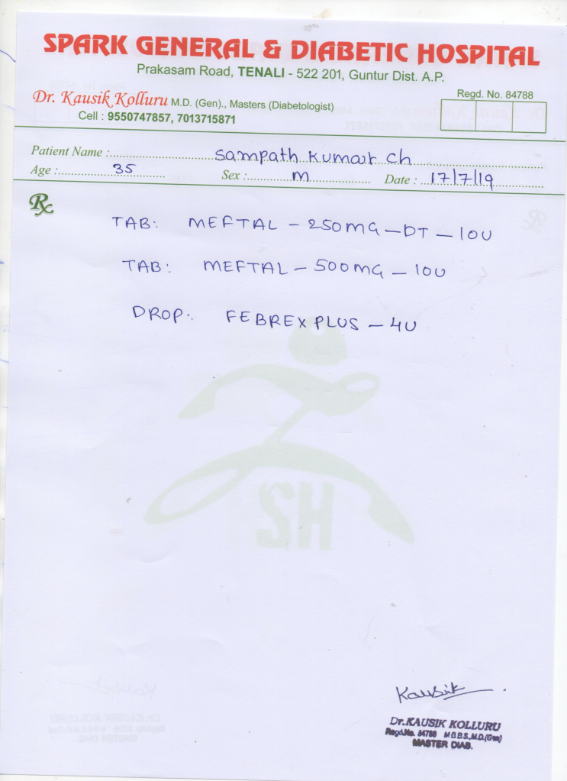 SPARK GENERAL & DIABETIC HOSPITAL
Prakasam Road, TENALI - 522 201, Guntur Dist. A.P.
Dr. Kausik Kolluru M.D. (Gen)., Masters (Diabetologist)
Regd. No. 84788
Cell : 9550747857, 7013715871
Patient Name : Sampath Kumar Ch
Age : 35 Sex : M Date : 17/7/19
Rx
TAB: MEFTAL - 250MG - DT - 10U
TAB: MEFTAL - 500MG - 10U
DROP: FEBREX PLUS - 4U
SH
Kausik
Dr.KAUSIK KOLLURU
Regd.No. 84788 M.B.B.S.,M.D.(Gen)
MASTER DIAB.